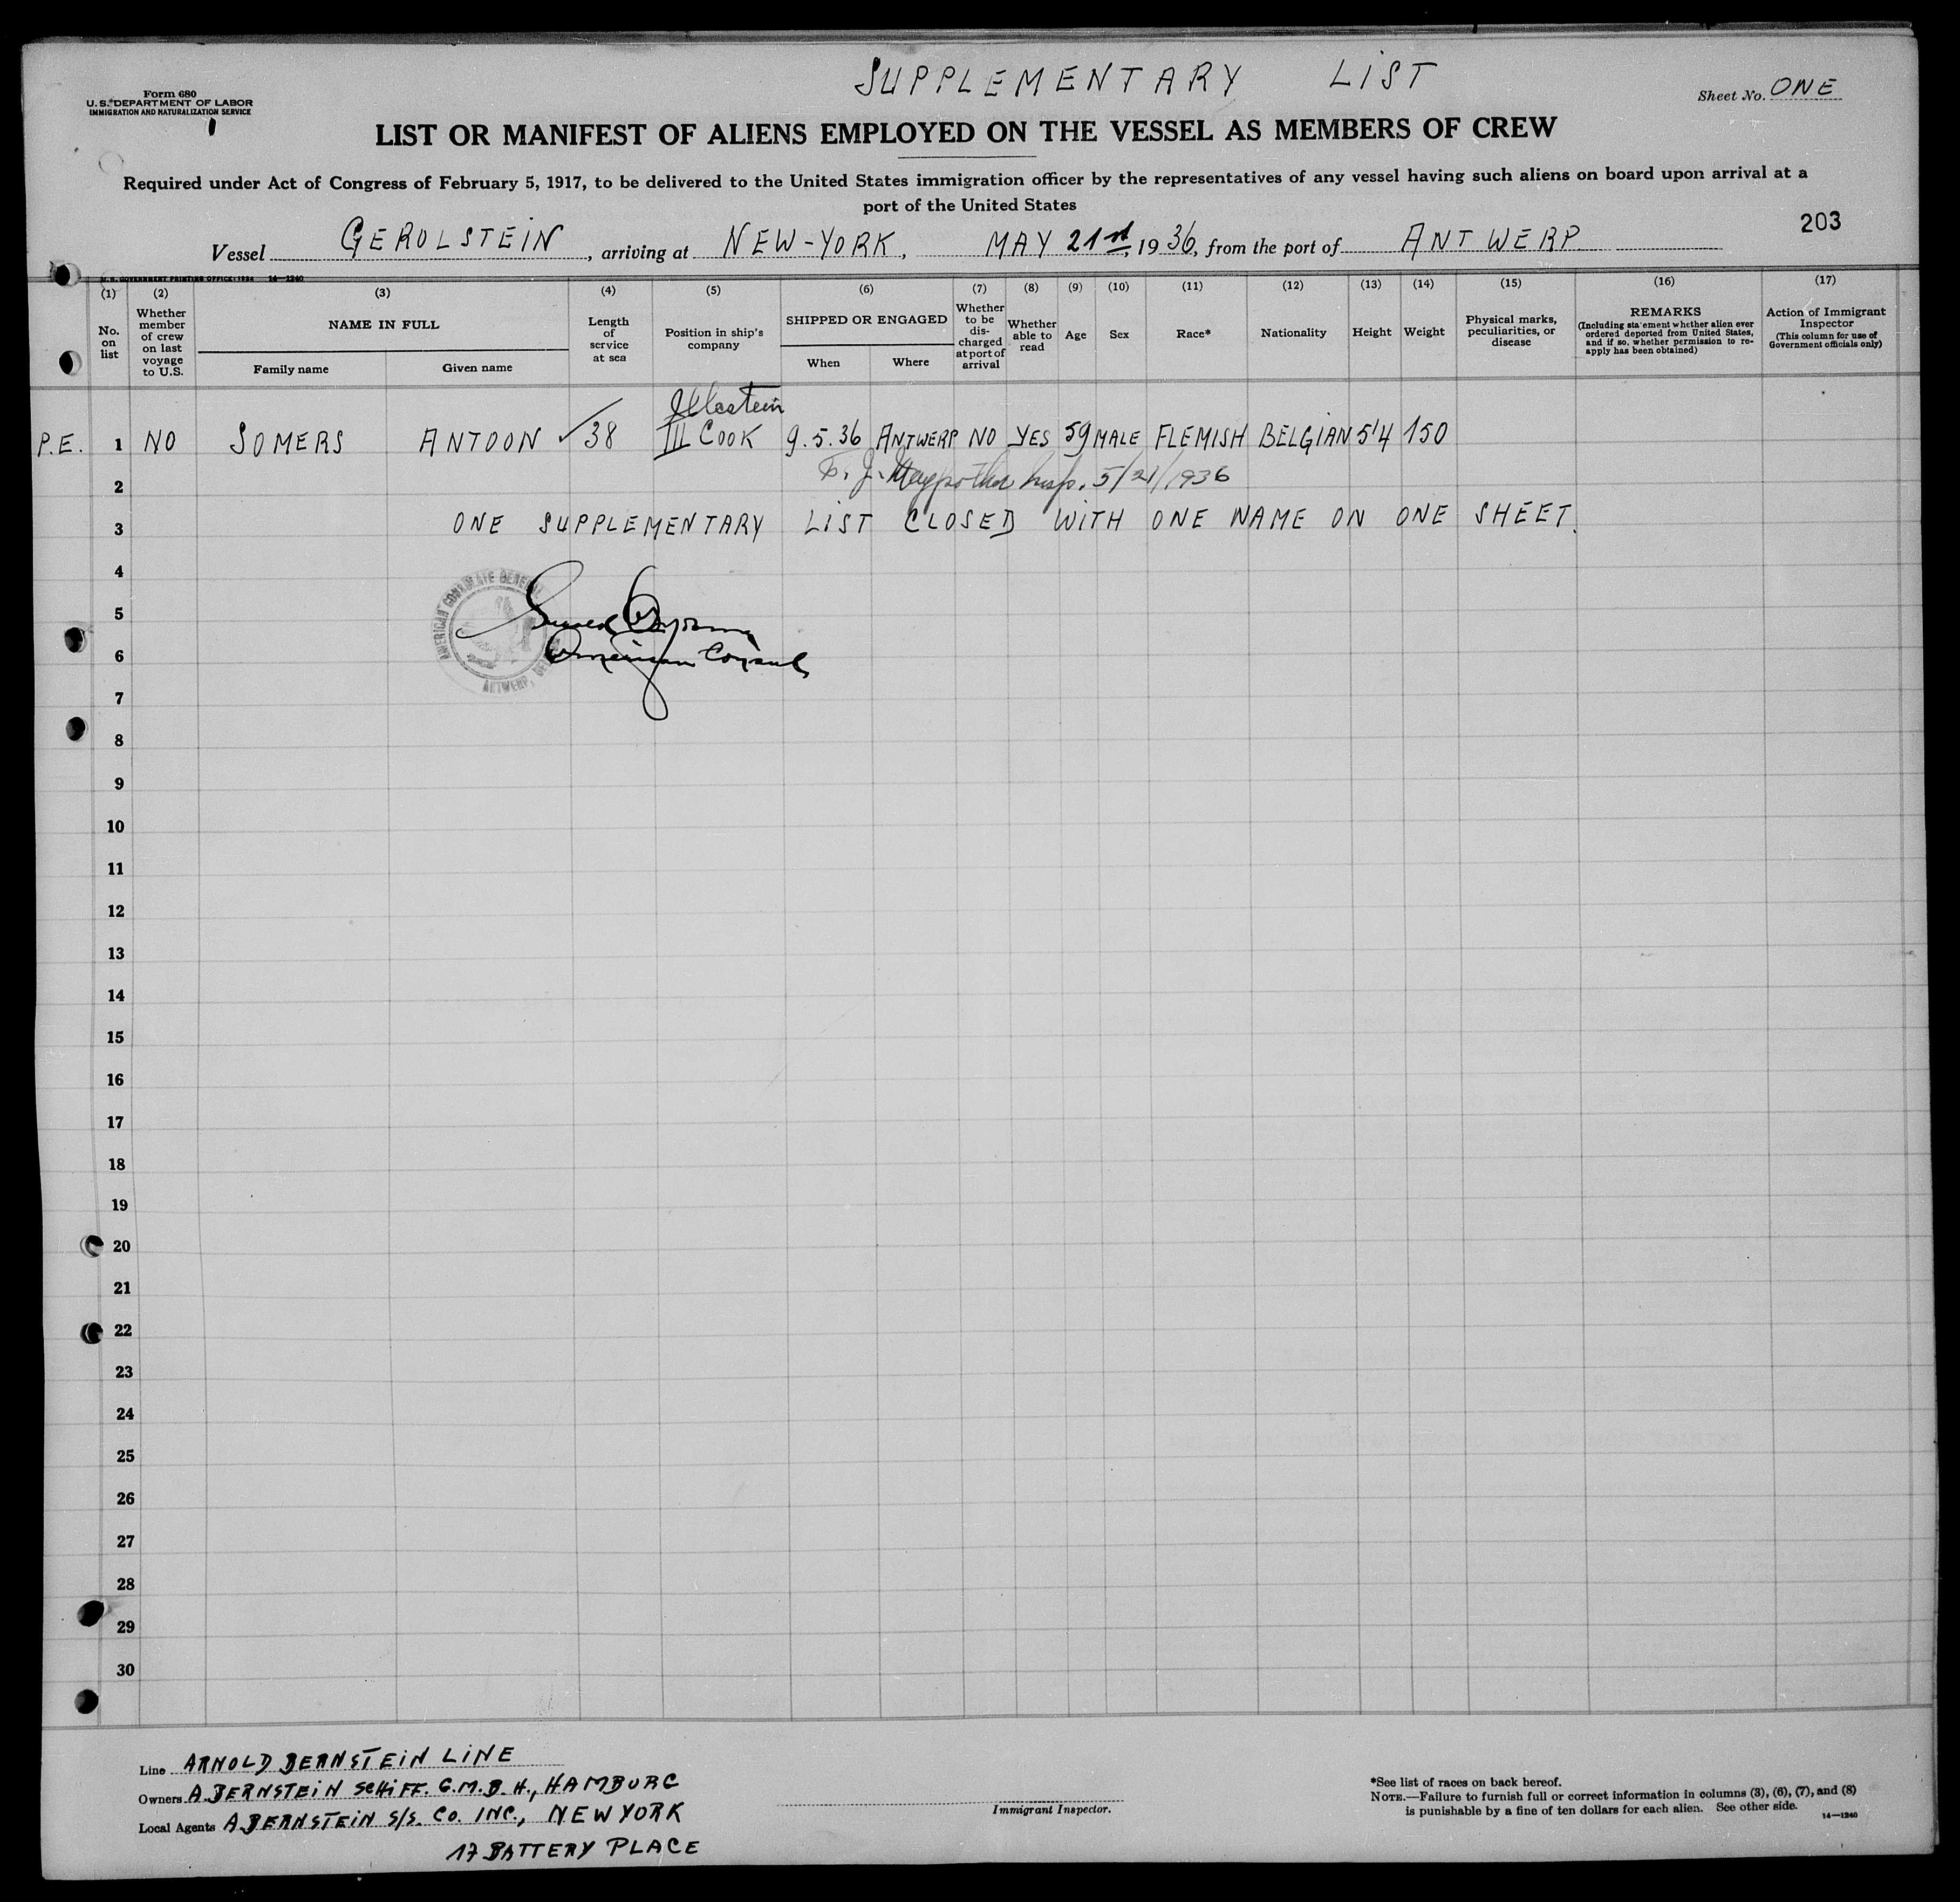 SUPPLEMENTARY LIST
Form 680
U. S. DEPARTMENT OF LABOR
IMMIGRATION AND NATURALIZATION SERVICE
Sheet No. ONE
LIST OR MANIFEST OF ALIENS EMPLOYED ON THE VESSEL AS MEMBERS OF CREW
Required under Act of Congress of February 5, 1917, to be delivered to the United States immigration officer by the representatives of any vessel having such aliens on board upon arrival at a
port of the United States
203
Vessel GEROLSTEIN, arriving at NEW-YORK, MAY 21st, 1936, from the port of ANTWERP
U. S. GOVERNMENT PRINTING OFFICE: 1934 14—1240
(1) (2) (3) (4) (5) (6) (7) (8) (9) (10) (11) (12) (13) (14) (15) (16) (17)
No. on list
Whether member of crew on last voyage to U.S.
NAME IN FULL
Family name
Given name
Length of service at sea
Position in ship's company
SHIPPED OR ENGAGED
When
Where
Whether to be discharged at port of arrival
Whether able to read
Age
Sex
Race*
Nationality
Height
Weight
Physical marks, peculiarities, or disease
REMARKS
(Including statement whether alien ever ordered deported from United States, and if so, whether permission to reapply has been obtained)
Action of Immigrant Inspector
(This column for use of Government officials only)
P.E. 1 NO SOMERS ANTOON 38 III COOK 9.5.36 ANTWERP NO YES 59 MALE FLEMISH BELGIAN 5'4 150
Insp. 5/21/1936
2
3 ONE SUPPLEMENTARY LIST CLOSED WITH ONE NAME ON ONE SHEET.
4
5
AMERICAN CONSULATE GENERAL
ANTWERP,
6 American Consul
7
8
9
10
11
12
13
14
15
16
17
18
19
20
21
22
23
24
25
26
27
28
29
30
Line ARNOLD BERNSTEIN LINE
Owners A BERNSTEIN SCHIFF. G.M.B.H., HAMBURG
Local Agents A BERNSTEIN S/S. Co. INC., NEW YORK
17 BATTERY PLACE
Immigrant Inspector.
*See list of races on back hereof.
NOTE.—Failure to furnish full or correct information in columns (3), (6), (7), and (8)
is punishable by a fine of ten dollars for each alien. See other side.
14—1240